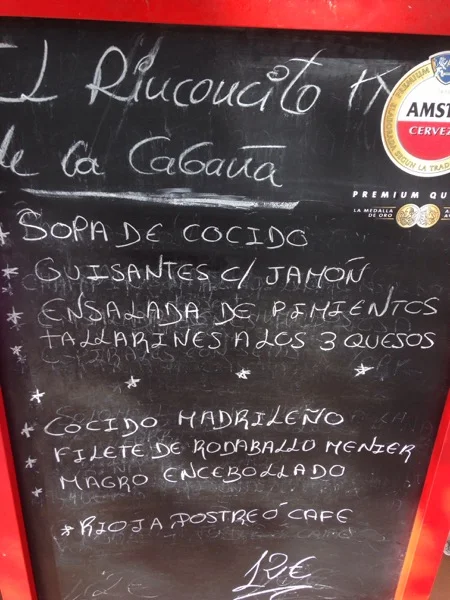 EL Rinconcito
de la Cabaña
AMST
CERVEZ
PREMIUM QU
LA MEDALLA
DE ORO
* SOPA DE COCIDO
* GUISANTES C/ JAMÓN
* ENSALADA DE PIMIENTOS
* TALLARINES A LOS 3 QUESOS
* COCIDO MADRILEÑO
* FILETE DE RODABALLO MENIER
* MAGRO ENCEBOLLADO
* RIOJA, POSTRE Ó CAFE
12€